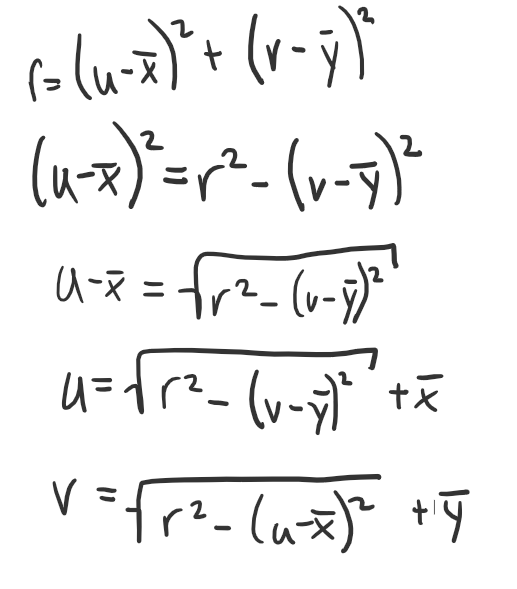 r = (u - x̄)² + (v - ȳ)²
(u - x̄)² = r² - (v - ȳ)²
u - x̄ = √(r² - (v - ȳ)²)
u = √(r² - (v - ȳ)²) + x̄
v = √(r² - (u - x̄)²) + ȳ